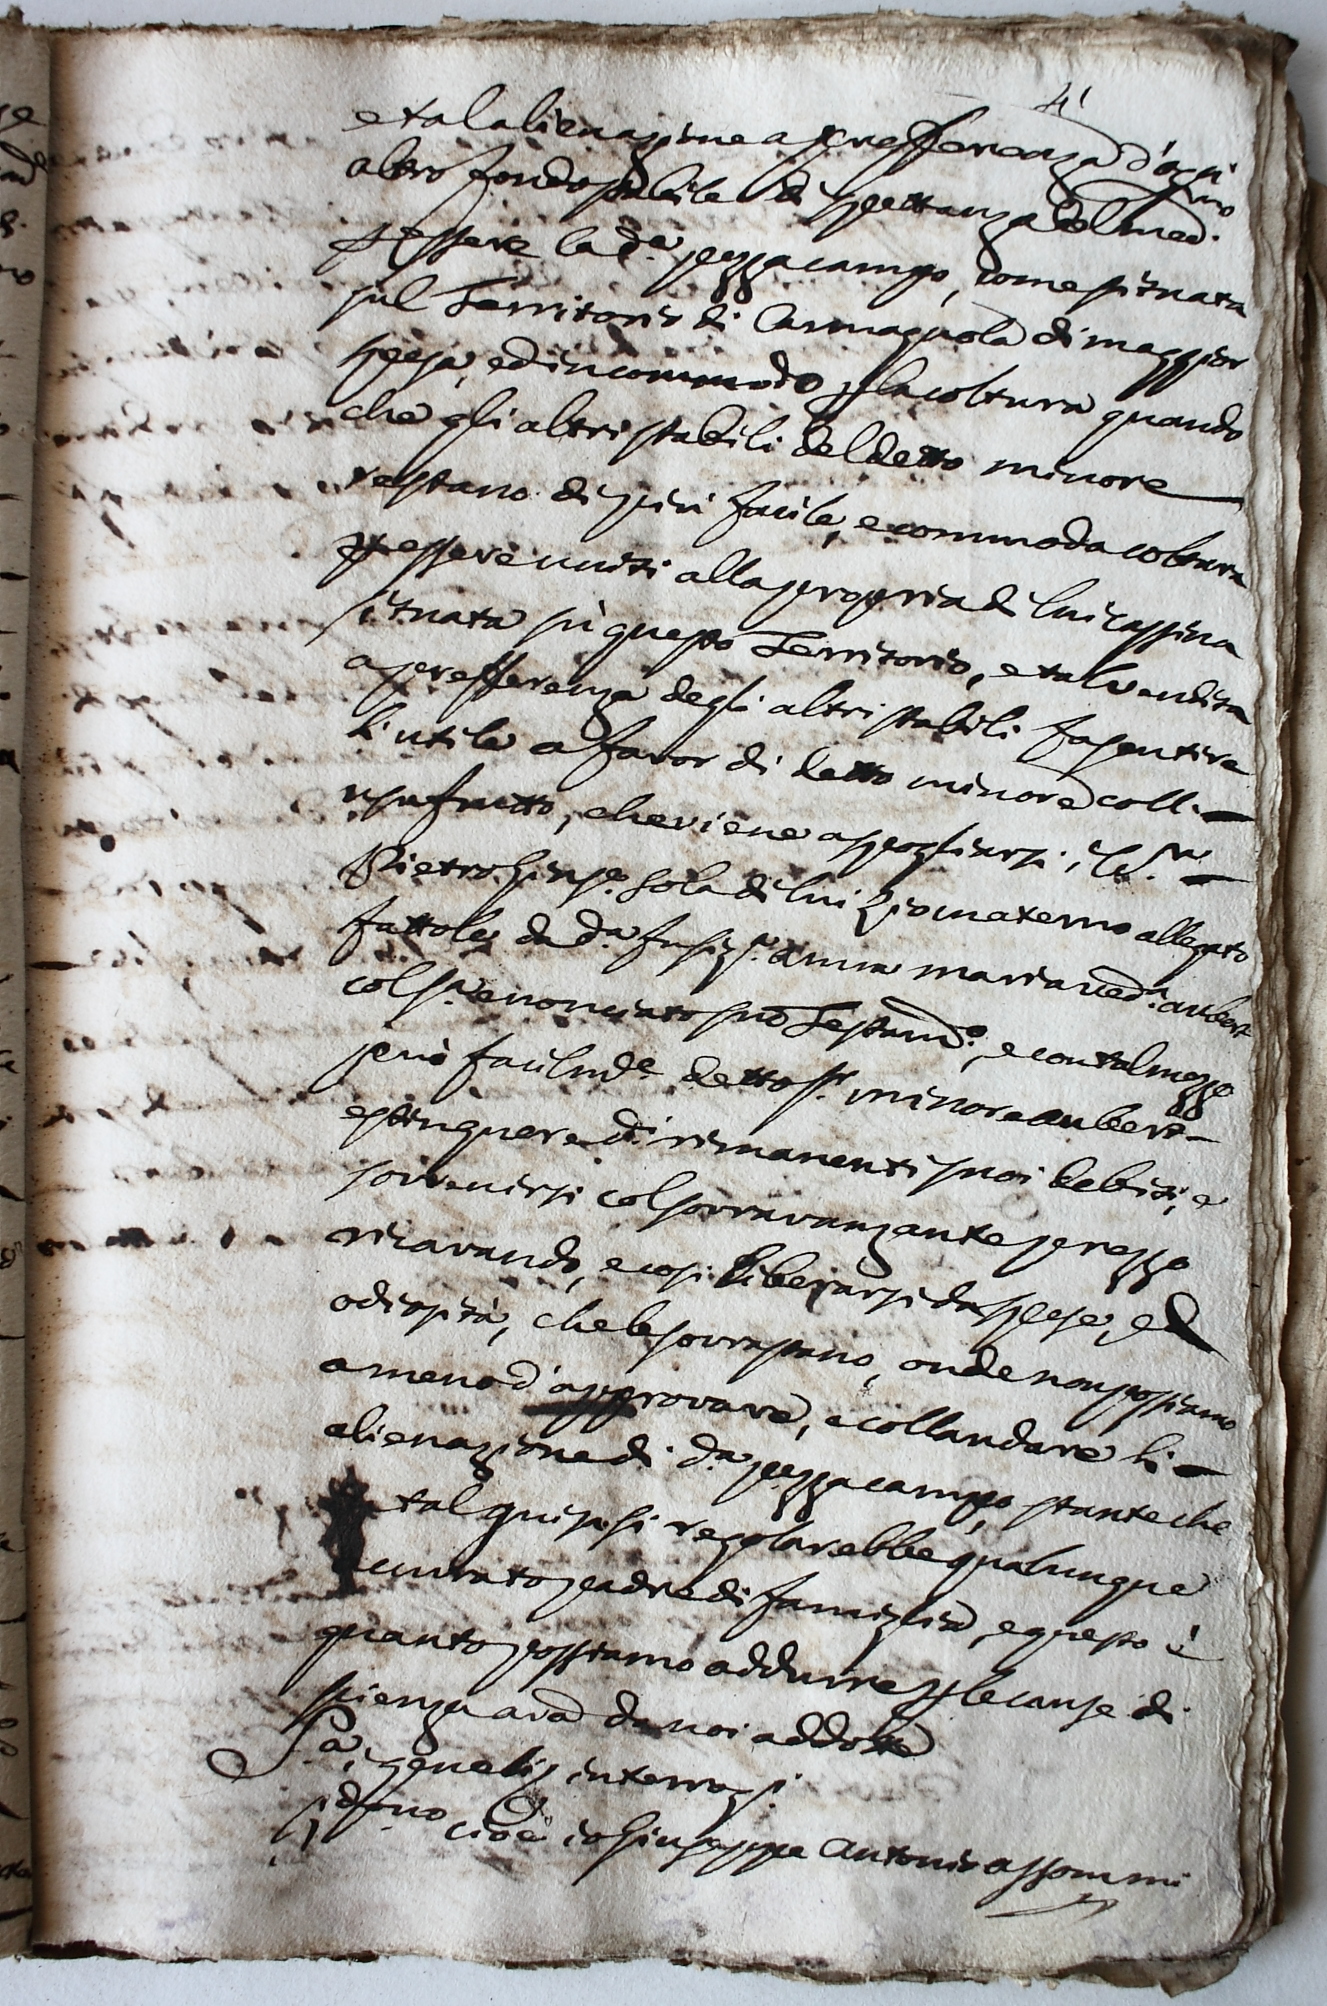 41
e tal alienazione a prefferenza d'ogni
altro fondo stabile di spettanza del med.mo
p essere la d.a pezza campo, come situata
sul Territorio di Carmagnola di maggior
spesa, ed incommodo p la coltura quando
che gli altri stabili del detto minore
restano di più facile, e commoda coltura
p essere uniti alla propria di lui cassina
situata sù questo Territorio, e tal vendita
a prefferenza degli altri stabili fa sentire
l'utile a favor di detto minore coll'
usufrutto, che viene a spogliarsi il S.r
Pietro Gius.e Sola di lui zio materno allegato
fattole da d.a fu Sig.ra Anna Maria ved.a Aubert
col s.a enonciato suo Testam.o, e con tal mezzo
può facilm.e detto S.r minore Aubert
estinguere di rimanenti suoi debiti, e
sovvenirsi col sovravanzante prezzo
ricavando, e così liberarsi da spese, ed
odiosità, che le sovrastano, onde non possiamo
a meno d'approvare, e collaudare l'
alienazione di d.a pezza campo, stante che
tal guisa si regolarebbe qualunque
accurato padre di famiglia, e questo è
quanto possiamo addurre p le cause di
scienza già da noi addotte
S.a generali interrog.i
rispo.no cioè io Giuseppe Antonio Assommi